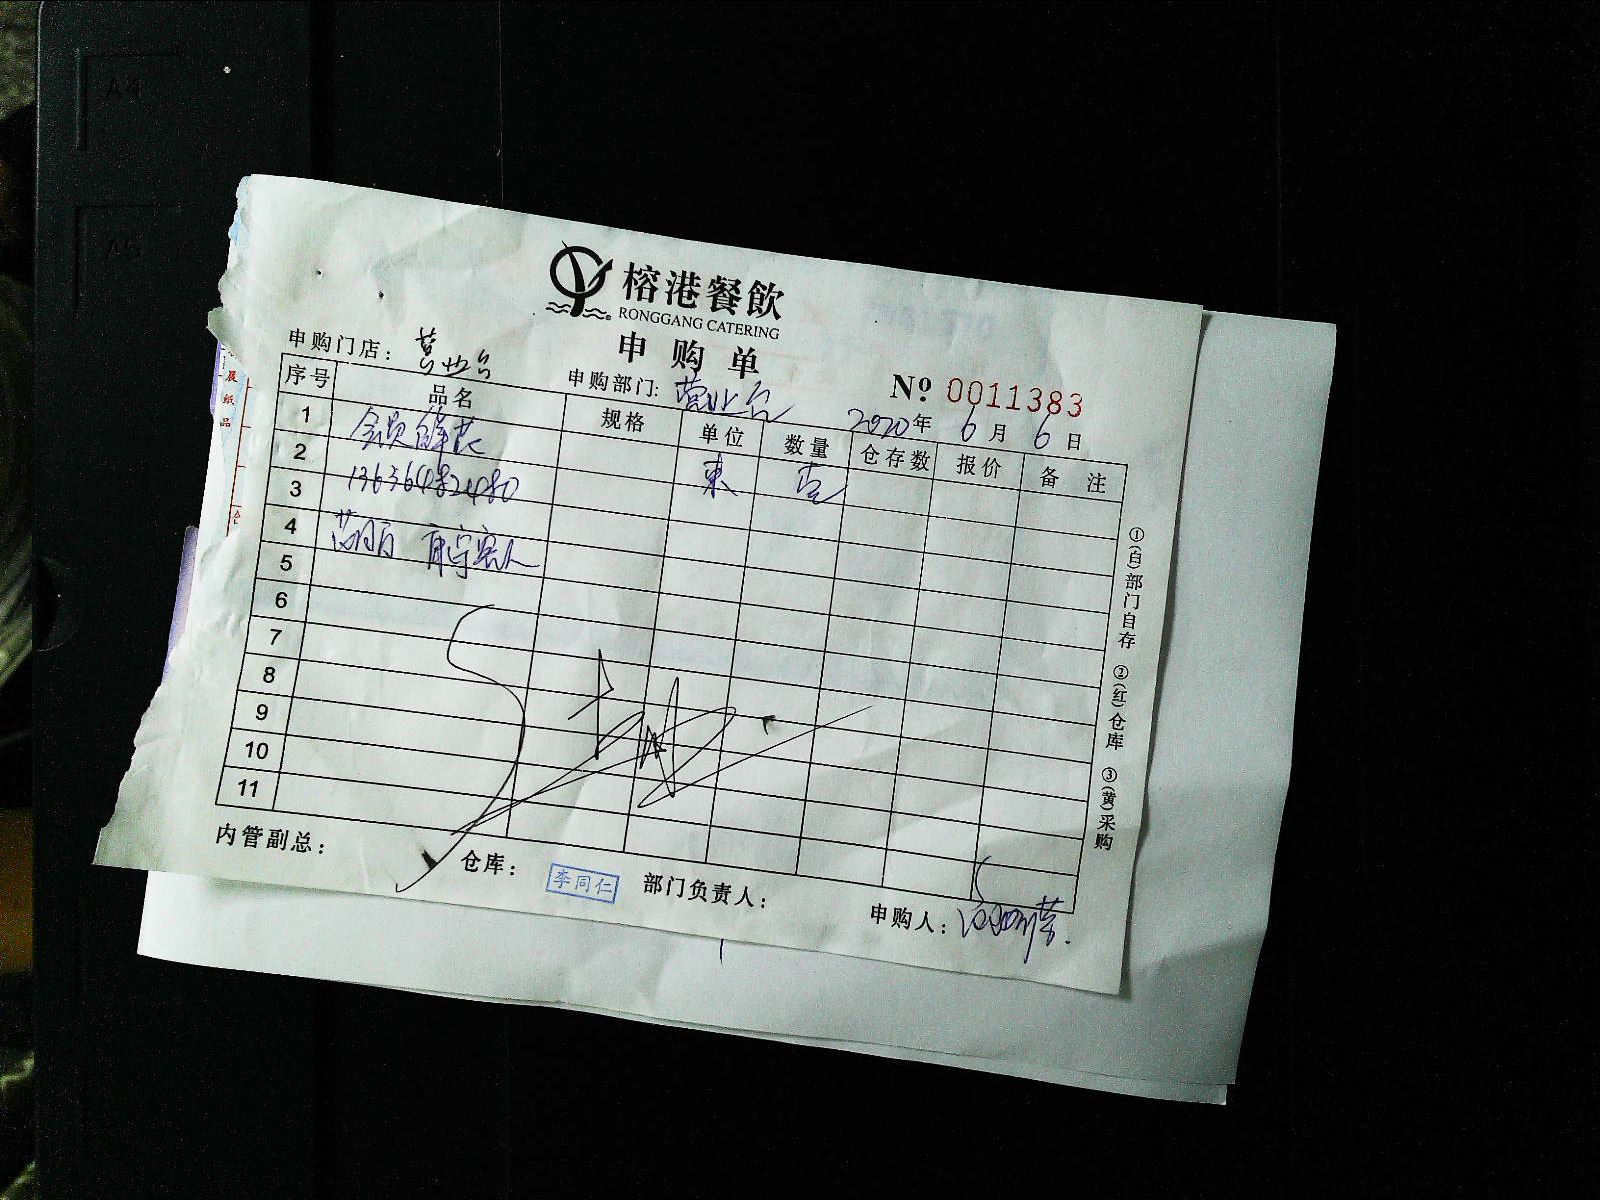 A4
A5
榕港餐飲
RONGGANG CATERING
申购单
申购门店：营业台
申购部门：营业台
№ 0011383
2020年 6月 6日
序号 品名 规格 单位 数量 仓存数 报价 备 注
1 会员鲜花 束 壹
2 13636482480
3
4 客人
5
6
7
8
9
10
11
内管副总：
仓库：
李同仁
部门负责人：
申购人：
①(白)部门自存 ②(红)仓库 ③(黄)采购
展纸品